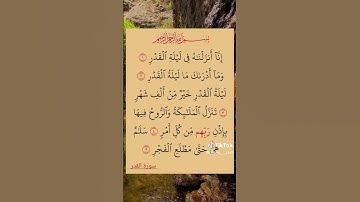 بسم الله الرحمن الرحيم
إِنَّآ أَنزَلْنَٰهُ فِى لَيْلَةِ ٱلْقَدْرِ ١
وَمَآ أَدْرَىٰكَ مَا لَيْلَةُ ٱلْقَدْرِ ٢
لَيْلَةُ ٱلْقَدْرِ خَيْرٌ مِّنْ أَلْفِ شَهْرٍ
٣ تَنَزَّلُ ٱلْمَلَٰٓئِكَةُ وَٱلرُّوحُ فِيهَا
بِإِذْنِ رَبِّهِم مِّن كُلِّ أَمْرٍ ٤ سَلَٰمٌ
هِىَ حَتَّىٰ مَطْلَعِ ٱلْفَجْرِ ٥
سورة القدر
TikTok